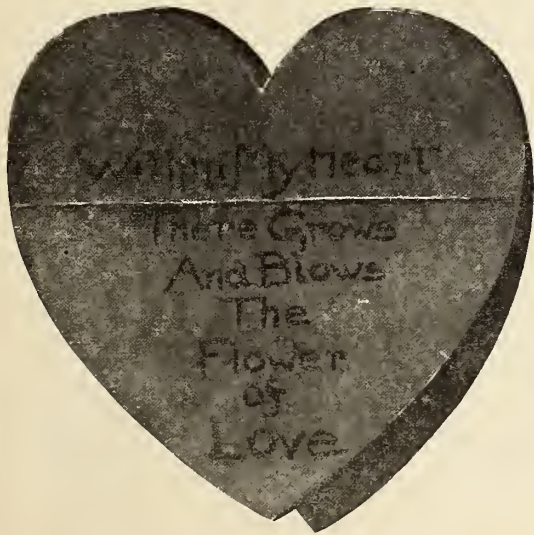 "Within My Heart"
There Grows
And Blows
The
Flower
of
Love